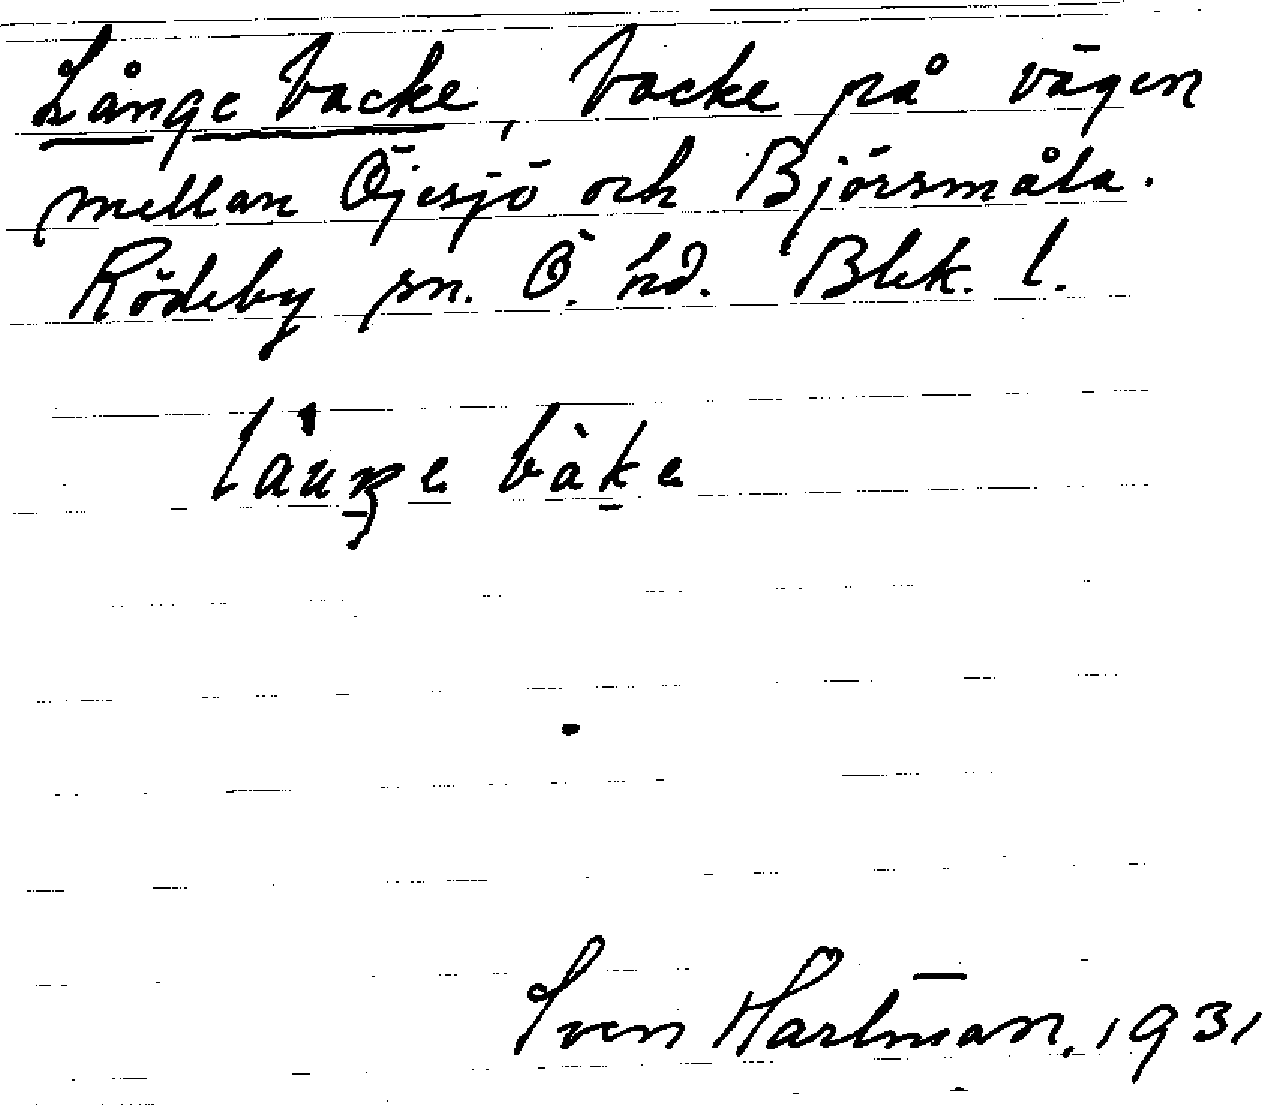 Långe backe, backe på vägen
mellan Öjesjö och Björsmåla.
Rödeby sn. Ö. hd. Blek. l.
Sven Hartman, 1931